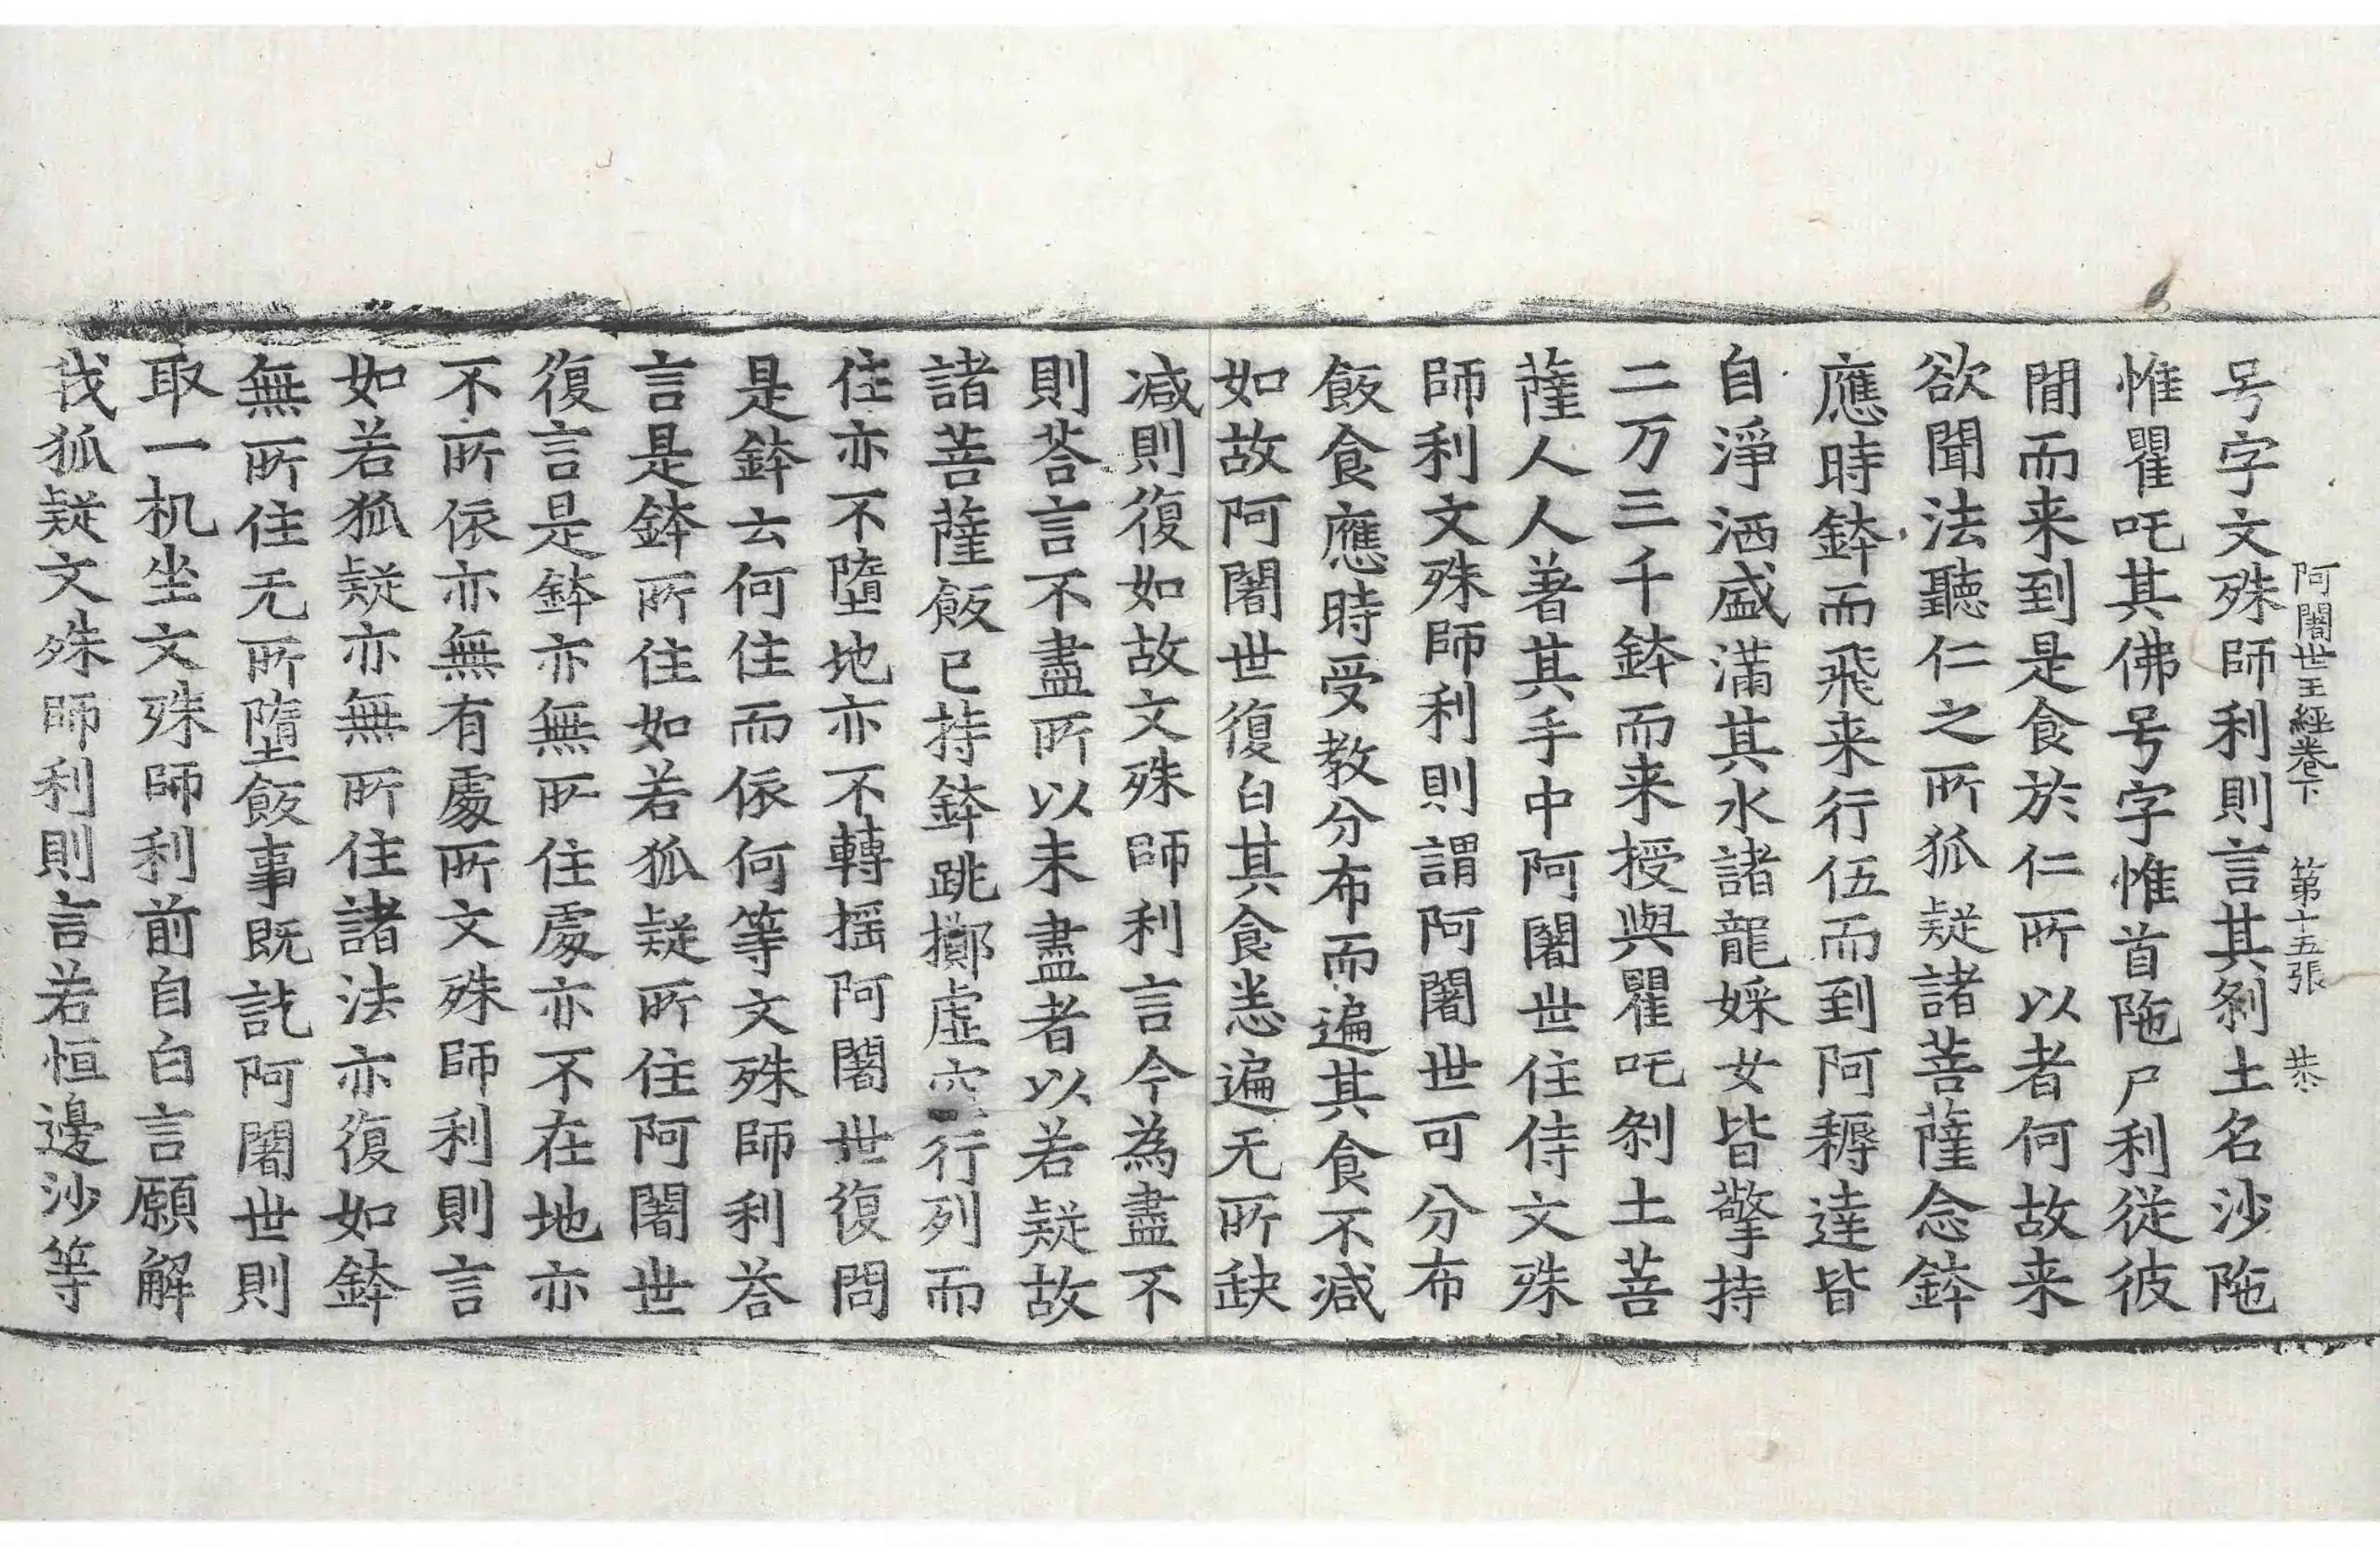 阿闍世王經卷下　第十五張　恭
号字文殊師利則言其刹土名沙陁
惟瞿吒其佛号字惟首陁尸利從彼
閒而来到是食於仁所以者何故来
欲聞法聽仁之所狐疑諸菩薩念鉢
應時鉢而飛来行伍而到阿耨達皆
自淨洒盛滿其水諸龍婇女皆擎持
二万三千鉢而来授與瞿吒刹土菩
薩人人著其手中阿闍世住侍文殊
師利文殊師利則謂阿闍世可分布
飯食應時受教分布而遍其食不減
如故阿闍世復白其食悉遍无所缺
减則復如故文殊師利言今為盡不
則荅言不盡所以未盡者以若疑故
諸菩薩飯已持鉢跳擲虛空行列而
住亦不墮地亦不轉揺阿闍世復問
是鉢云何住而依何等文殊師利荅
言是鉢所住如若狐疑所住阿闍世
復言是鉢亦無所住處亦不在地亦
不所依亦無有處所文殊師利則言
如若狐疑亦無所住諸法亦復如鉢
無所住无所墮飯事既訖阿闍世則
取一机坐文殊師利前自白言願解
我狐疑文殊師利則言若恒邊沙等